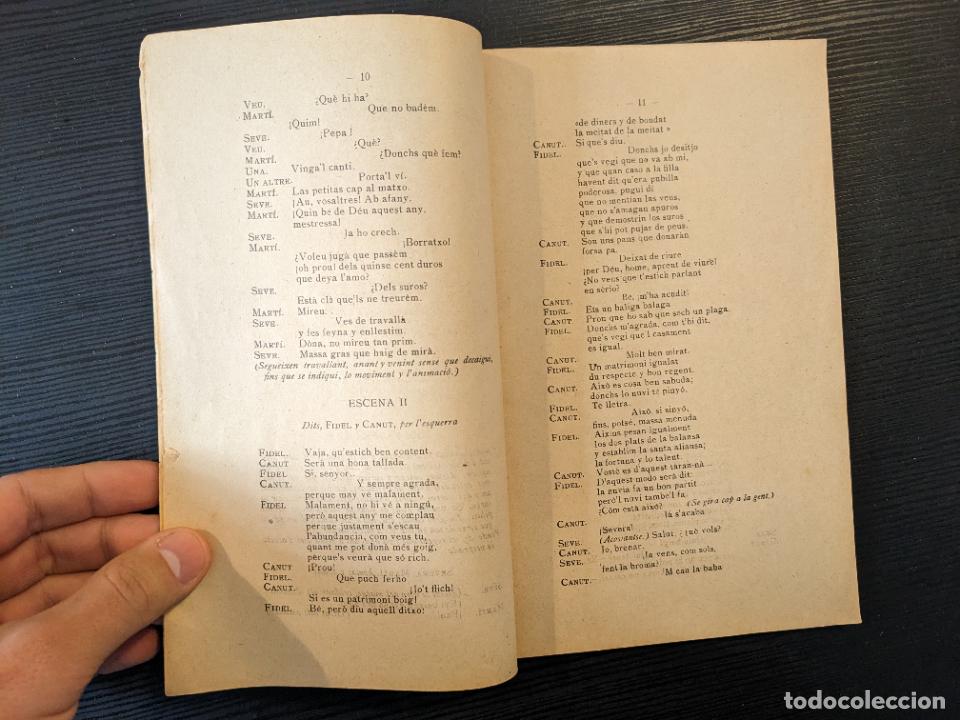 — 10
VEU. ¿Què hi ha?
MARTÍ. Que no badèm.
¡Quim!
SEVE. ¡Pepa!
VEU. ¿Què?
MARTÍ. ¿Donchs què fem?
UNA. Vinga'l cantí.
UN ALTRE. Porta'l ví.
MARTÍ. Las petitas cap al matxo.
SEVE. ¡Au, vosaltres! Ab afany.
MARTÍ. ¡Quin be de Déu aquest any,
mestressa!
SEVE. Ja ho crech.
MARTÍ. ¡Borratxo!
¿Voleu jugà que passèm
¡oh prou! dels quinse cent duros
que deya l'amo?
SEVE. ¿Dels suros?
Està clà que'ls ne treurèm.
MARTÍ. Mireu.
SEVE. Ves de travallà
y fes feyna y enllestim.
MARTÍ. Dòna, no mireu tan prim.
SEVE. Massa gras que haig de mirà.
(Segueixen travallant, anant y venint sense que decaigui,
fins que se indiqui, lo moviment y l'animació.)
ESCENA II
Dits, FIDEL Y CANUT, per l'esquerra
FIDEL. Vaja, qu'estich ben content.
CANUT Serà una bona tallada.
FIDEL Sí, senyor..
CANUT. Y sempre agrada,
perque may ve malament.
FIDEL Malament, no hi vé a ningú,
però aquest any me complau
perque justament s'escau
l'abundancia, com veus tu,
quant me pot donà més goig,
perque's veurà que só rich.
CANUT ¡Prou!
FIDEL. Què puch ferho
CANUT. ¡Jo't flich!
Si es un patrimoni boig!
FIDEL. Bé, però diu aquell ditxo:
— 11 —
«de diners y de bondat
la meitat de la meitat »
CANUT. Si que's diu.
FIDEL. Donchs jo desitjo
que's vegi que no va ab mi,
y que quan caso a la filla
havent dit qu'era pubilla
poderosa, pugui di
que no mentian las veus,
que no s'amagan apuros
y que demostrin los suros
que s'hi pot pujar de peus.
CANUT. Son uns pans que donaràn
forsa pa.
FIDEL. Deixat de riure
¡per Déu, home, aprent de viure!
¿No vens que t'estich parlant
en sèrio?
CANUT. Be, ¡m'ha acudit!
FIDEL. Ets un baliga balaga
CANUT. Prou que ho sab que soch un plaga.
FIDEL. Donchs m'agrada, com t'hi dit,
que's vegi que'l casament
es igual.
CANUT. Molt ben mirat.
FIDEL. Un matrimoni igualat
du respecte y bon regent.
CANUT. Això es cosa ben sabuda;
donchs lo nuvi te pinyò.
FIDEL. Te lletra.
CANUT. Això, si sinyó,
fins, potsé, massa menuda
FIDEL. Aixins pesan igualment
los dos plats de la balansa
y establim la santa aliansa;
la fortuna y lo talent.
CANUT. Vostè es d'aquest taran-nà...
FIDEL. D'aquest modo serà dit:
la nuvia fa un bon partit
però'l nuvi tambe'l fa.
¿Còm està això? (Se gira cap a la gent.)
CANUT. Ja s'acaba
¡Severa!
SEVE. (Acostantse.) Salut, ¿què vols?
CANUT. Jo, brenar.
SEVE. ¿Ja vens, com sols,
fent la broma?
CANUT. 'M cau la baba
todocoleccion